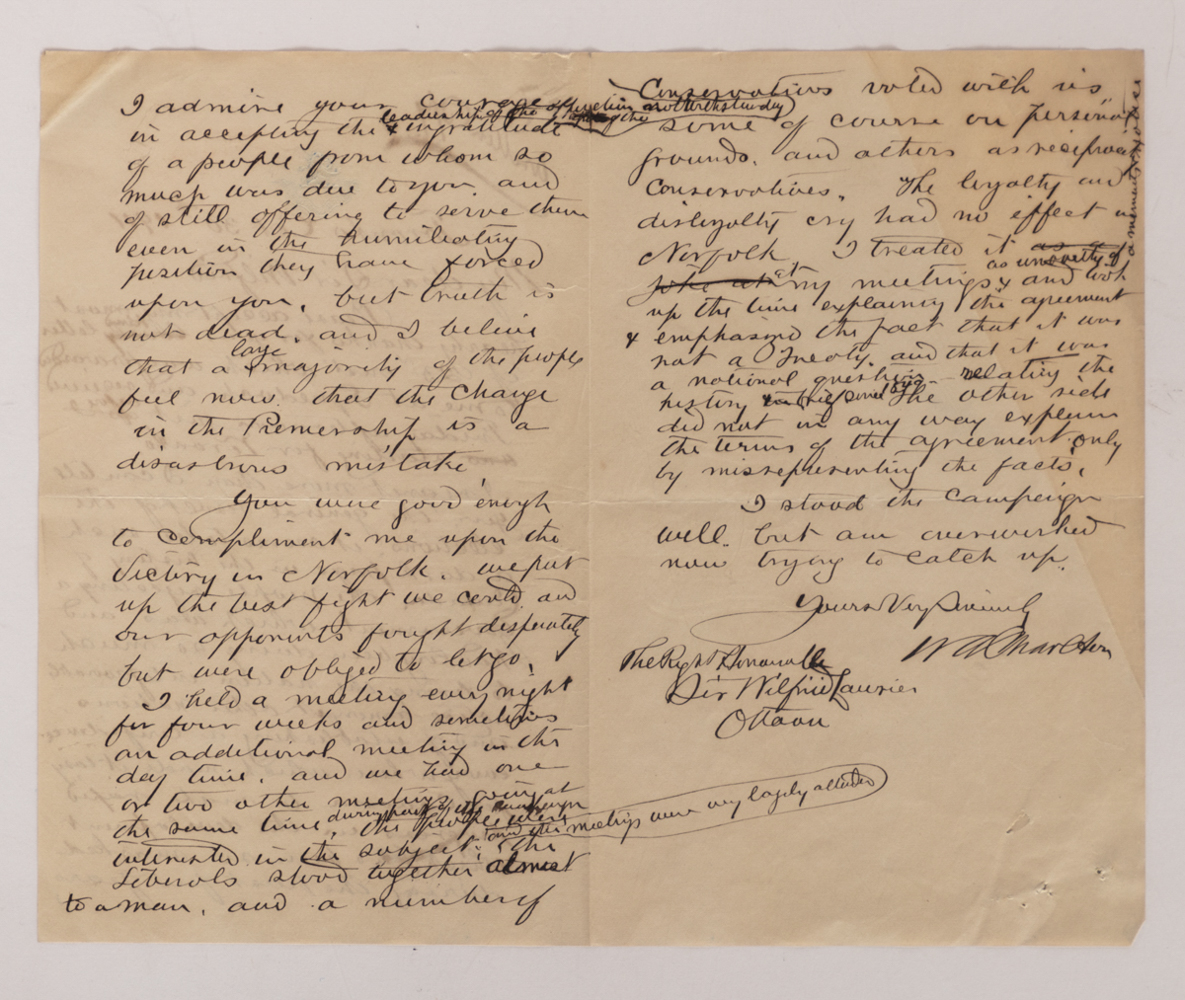 I admire your courage
leadership of the opposition notwithstanding
in accepting the & ingratitude of the
of a people from whom so
much was due to you, and
of still offering to serve them
even in the humiliating
position they have forced
upon you, but truth is
not dead, and I believe
large
that a majority of the people
feel now that the change
in the Premiership is a
disastrous mistake
You were good enough
to compliment me upon the
victory in Norfolk. We put
up the best fight we could and
our opponents fought desperately
but were obliged to let go.
I held a meeting every night
for four weeks and sometimes
an additional meeting in the
day time, and we had one
or two other meetings going at
during part of the campaign
the same time, the people were
interested in the subject, and the meetings were very largely attended
the
Liberals stood together almost
to a man, and a number of
Conservatives voted with us
some of course on personal
grounds, and others as reciprocity
Conservatives. The loyalty and
disloyalty cry had no effect in
Norfolk I treated it as a
as unworthy of a moments notice
joke at at my meetings & and took
up the time explaining the agreement
& emphasised the fact that it was
not a Treaty, and that it was
a national question relating the
history of it since The other side
did not in any way explain
the terms of the agreement only
by misrepresenting the facts.
I stood the campaign
well. but am overworked
now trying to catch up.
Yours Very Sincerely
W A Charlton
The Right Honourable
Sir Wilfrid Laurier
Ottawa